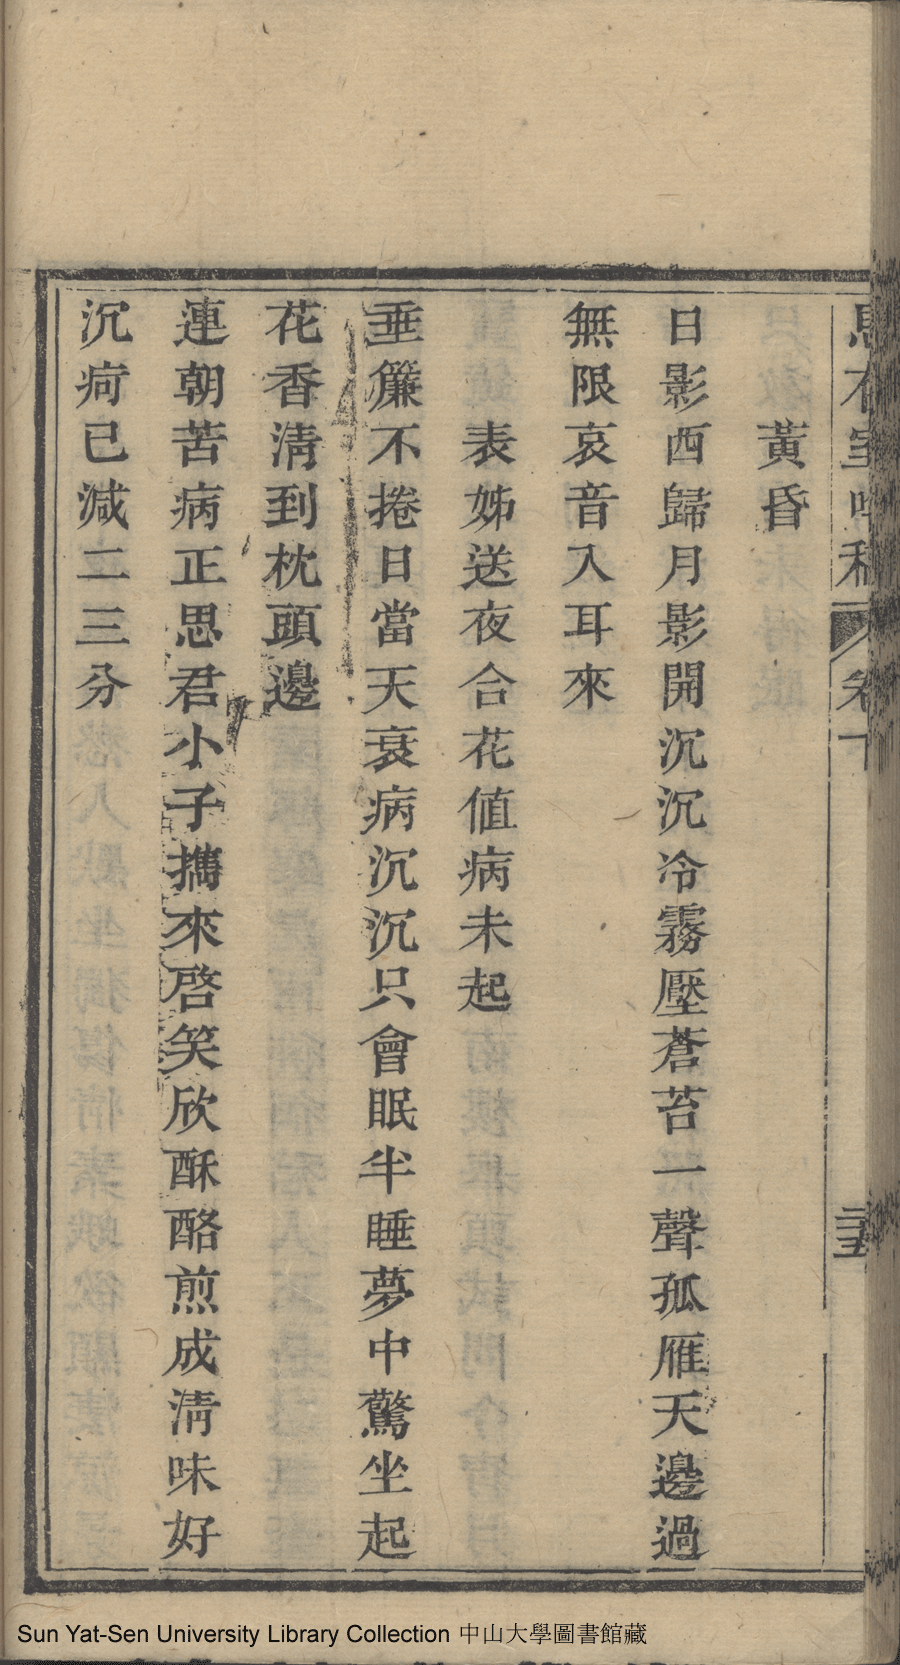 黃昏
日影西歸月影開沉沉冷霧壓蒼苔一聲孤雁天邊過
無限哀音入耳來
表姊送夜合花值病未起
垂簾不捲日當天衰病沉沉只會眠半睡夢中驚坐起
花香淸到枕頭邊
連朝苦病正思君小子攜來啓笑欣酥酪煎成淸味好
沉疴已減二三分
卷下
Sun Yat-Sen University Library Collection 中山大學圖書館藏